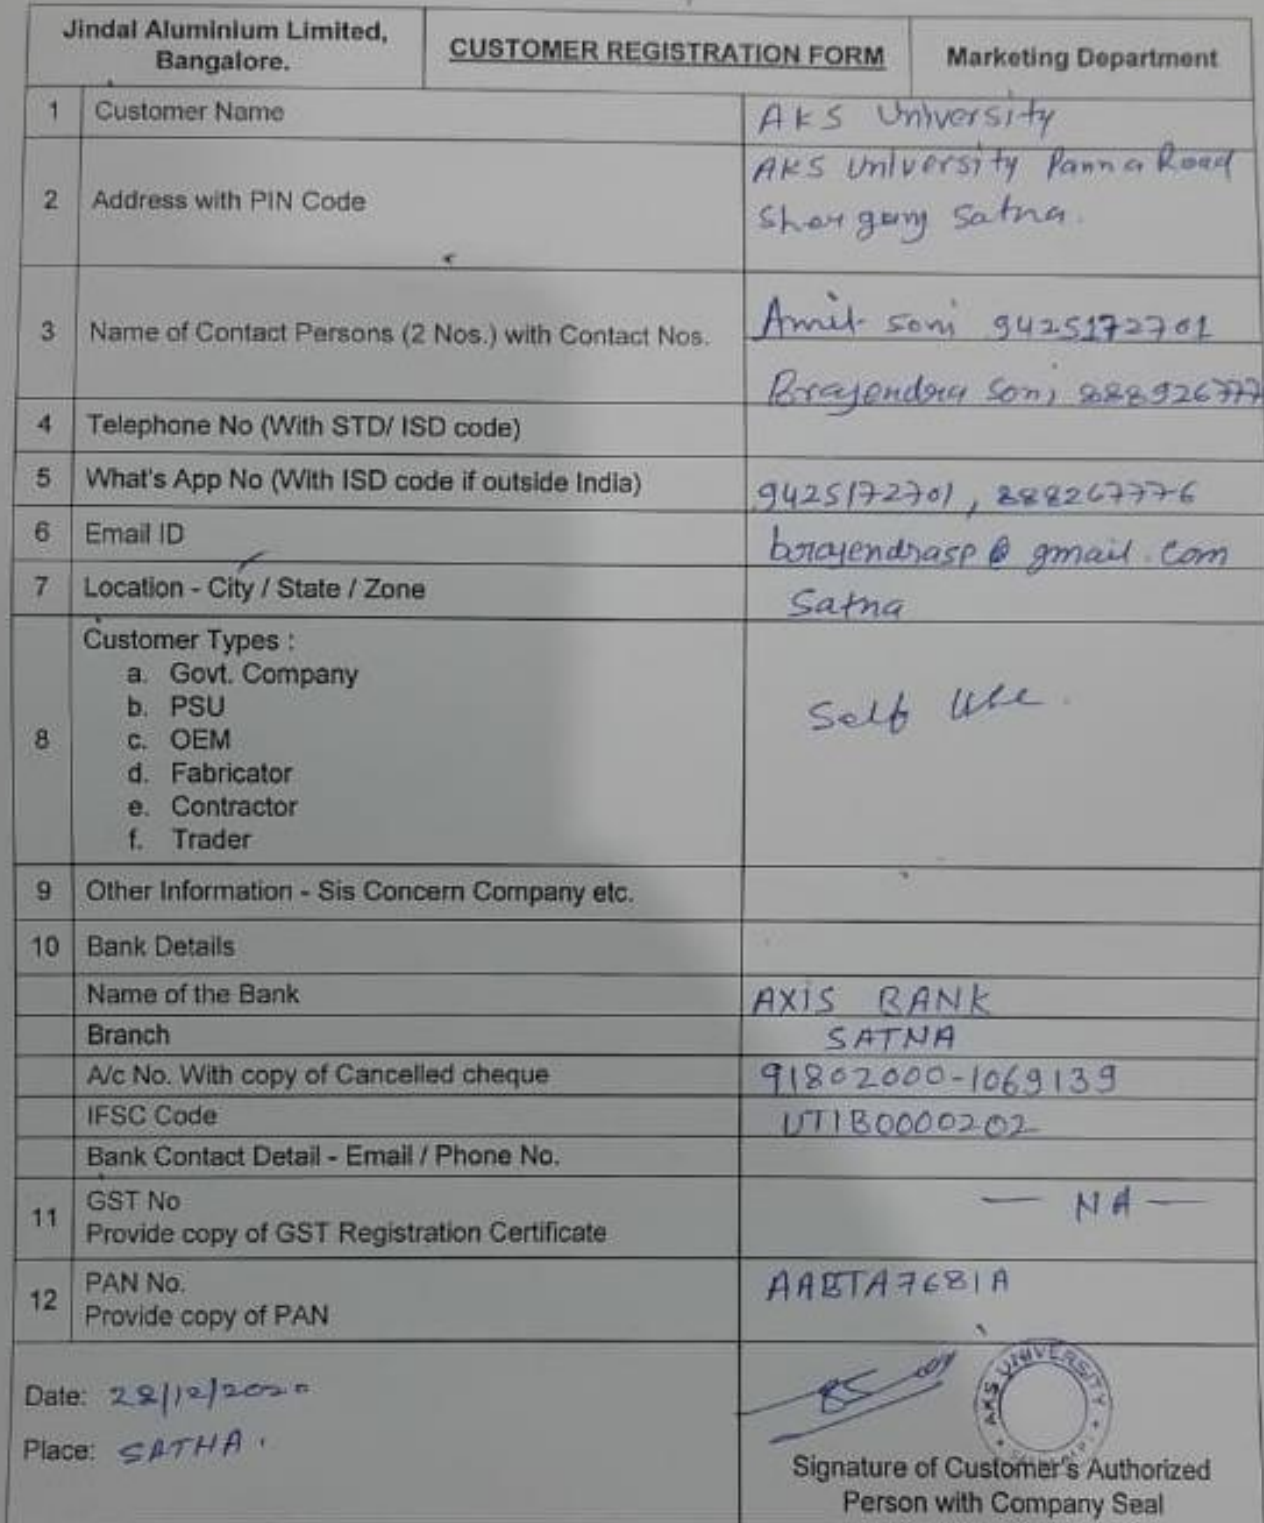 Jindal Aluminium Limited,
Bangalore.
CUSTOMER REGISTRATION FORM
Marketing Department
1 Customer Name AKS University
2 Address with PIN Code AKS University Panna Road
Shergunj Satna.
3 Name of Contact Persons (2 Nos.) with Contact Nos. Amit Soni 9425172701
Brajendra Soni 888926777
4 Telephone No (With STD/ ISD code)
5 What's App No (With ISD code if outside India) 9425172701, 888267776
6 Email ID brajendrasp@gmail.com
7 Location - City / State / Zone Satna
8 Customer Types :
a. Govt. Company
b. PSU
c. OEM
d. Fabricator
e. Contractor
f. Trader
Self Use.
9 Other Information - Sis Concern Company etc.
10 Bank Details
Name of the Bank AXIS BANK
Branch SATNA
A/c No. With copy of Cancelled cheque 91802000-1069139
IFSC Code UTIB0000202
Bank Contact Detail - Email / Phone No.
11 GST No
Provide copy of GST Registration Certificate
— NA —
12 PAN No. AABTA7681A
Provide copy of PAN
Date: 28/12/2020
Place: SATNA.
AKS UNIVERSITY
Signature of Customer's Authorized
Person with Company Seal